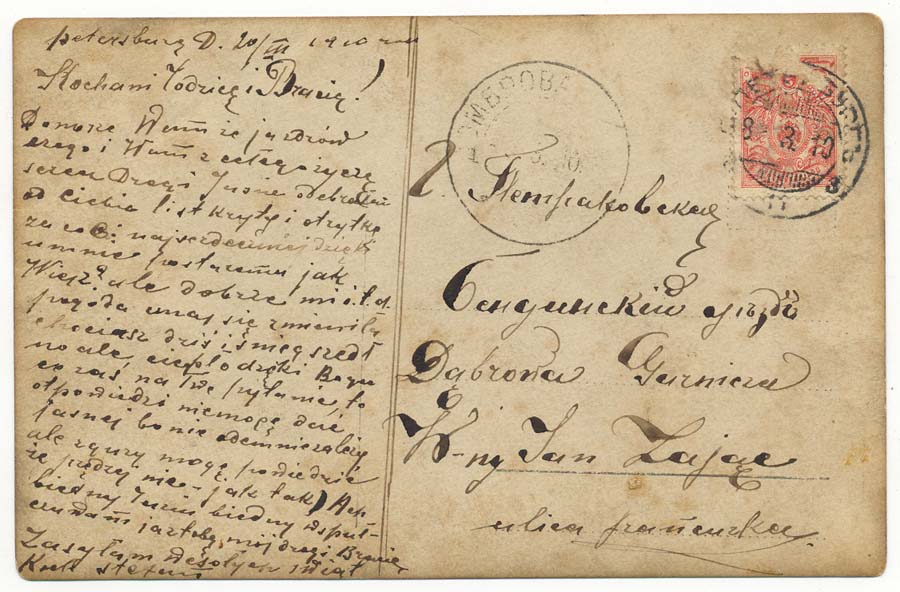 petersburg D. 20/III 1910
Kochani i Bracie!
Donoszę Wam że jazdrów
czego i Wam z całego życzę
serca Drogi debrałem
od Ciebie list i
za co Ci najserdeczniej dzięki
umnie postaremu jak
Wiesz ale dobrze mi i t.d.
pogoda unas się zmieniła
chociaz dziś i śnieg szedł
no ale ciepło dzięki Bogu
co zaś na Twe pytanie to
otpowiedzi niemogę dać
jasnej bo nie odemnie zależy
ale zgury mogę powiedzieć
że prędzej nie jak tak)
biedny biedny
mój drogi Bracie
Zasyłam wesołych Świąt
Stefan
ДОМБРОВА
Г. Петраковская
Бендинскій уѣздъ
Dąbrowa Gurnicza
W-ny Jan Zając
ulica
8 3 10